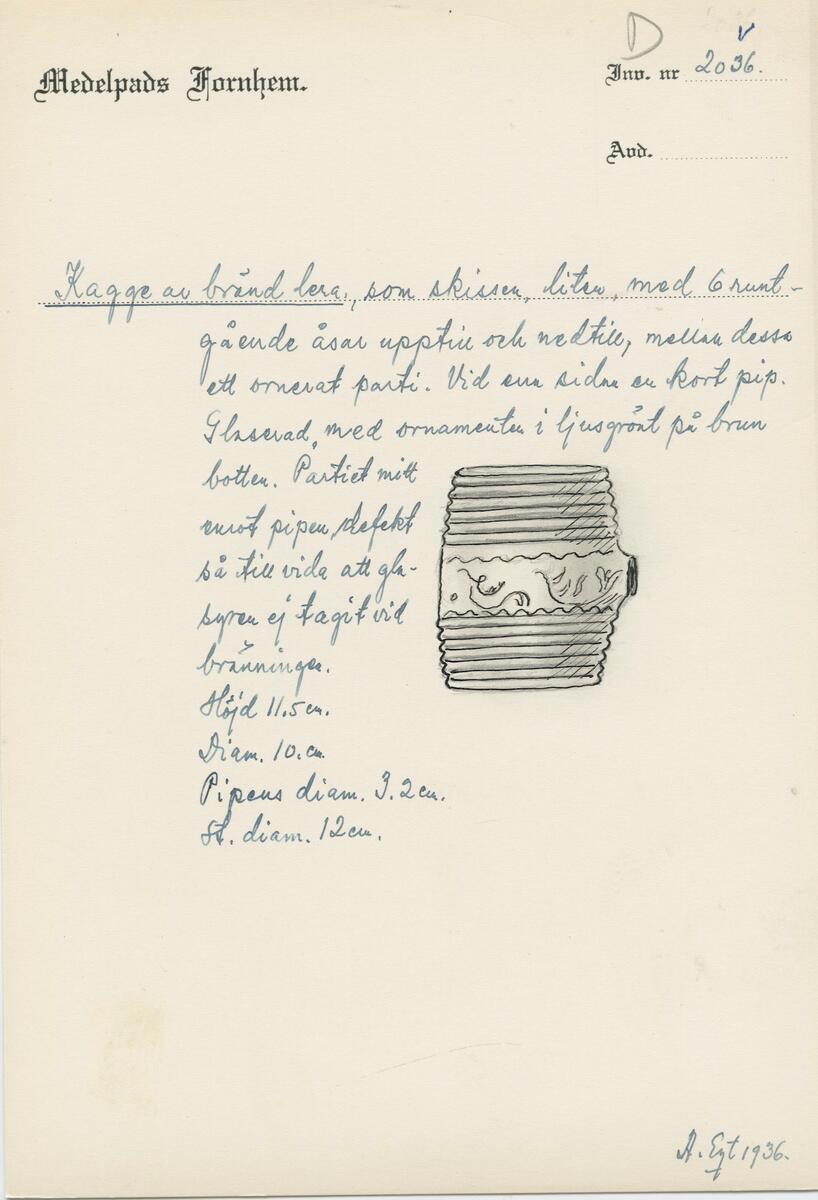 D
Medelpads Fornhem.
Inv. nr 2036.
Avd.
Kagge av bränd lera, som skissen, liten, med 6 runt-
gående åsar upptill och nedtill, mellan dessa
ett ornerat parti. Vid ena sidan en kort pip.
Glaserad, med ornamenten i ljusgrönt på brun
botten. Partiet mitt
emot pipen, defekt
så till vida att gla-
syren ej tagit vid
bränningen.
Höjd 11.5 cm.
Diam. 10. cm.
Pipens diam. 3.2 cm.
St. diam. 12 cm.
A. Eqt 1936.